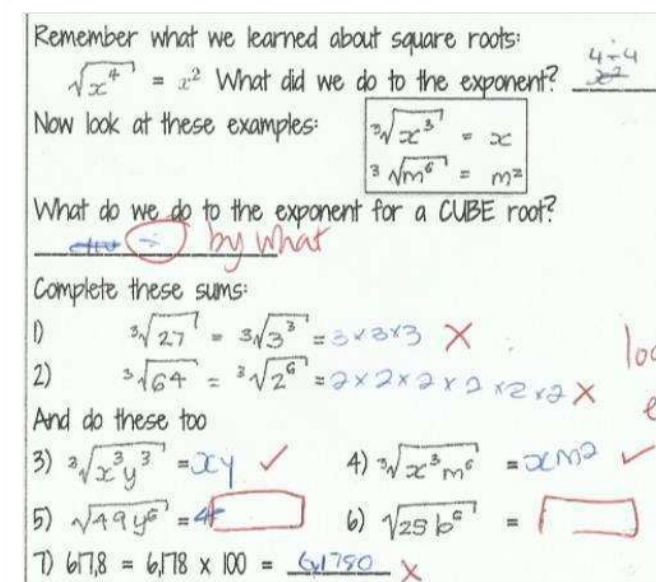 Remember what we learned about square roots:
√x⁴ = x² What did we do to the exponent? 4÷4
Now look at these examples: ³√x³ = x
³√m⁶ = m²
What do we do to the exponent for a CUBE root?
÷ by what
Complete these sums:
1) ³√27 = ³√3³ = 3×3×3 ×
2) ³√64 = ³√2⁶ = 2×2×2×2×2×2 ×
And do these too
3) ³√x³y³ = xy ✓ 4) ³√x³m⁶ = xm² ✓
5) √49y⁶ = 6) √25b⁶ =
7) 617,8 = 6,178 x 100 = ×